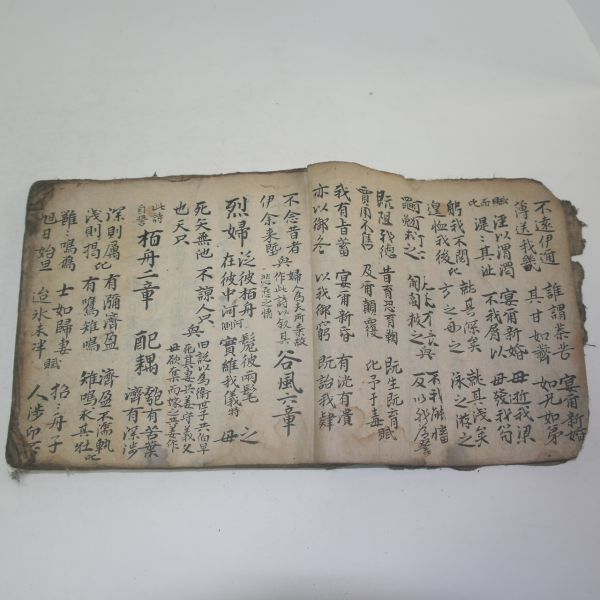 不遠伊邇 誰謂荼苦 宴甭新婚
薄送我畿 其甘如薺 如兄如弟
賦而比 涇以渭濁 宴甭新婚 毋逝我梁
湜〻其沚 不我屑以 毋發我笱
躬我不閱 比 就其深矣 就其淺矣
遑恤我後 方之舟之 泳之游之
興 不我能慉
黽勉求之 匍匐救之 反以我爲讐
旣阻我德 昔育恐育鞫 旣生旣育 賦
賈用不售 及甭顚覆 比予于毒
我有旨蓄 宴甭新昏 有洸有潰
亦以御冬 以我御窮 旣詒我肄
不念昔者 婦人爲夫所棄故
伊余來墍 興 作此詩以叙其悲怨之情 谷風六章
烈婦 泛彼柏舟 髧彼兩髦 之
在彼中河 河側 實維我儀 特 母
死矢靡他 不諒人只 興 旧說以爲衛世子共伯早
也天只 死其妻共姜守義父母欲奪而嫁之共姜作
此詩自誓 柏舟二章 配耦 匏有苦葉
濟有深涉
深則厲 有瀰濟盈 濟盈不濡軌
淺則揭 比 有鷕雉鳴 雉鳴求其牡 比
雝〻鳴鴈 士如歸妻 賦 招〻舟子
旭日始旦 迨氷未泮 人涉卬否